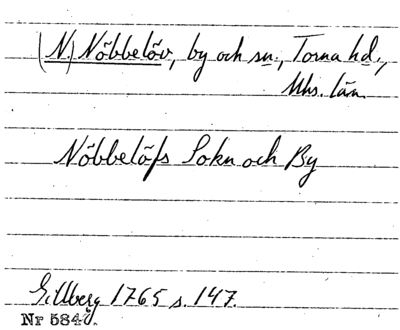 (N.) Nöbbelöv, by och sn., Torna hd.,
Mhs. län.
Nöbbelöfs Sokn och By
Gillberg 1765 s. 147.
Nr 5847.